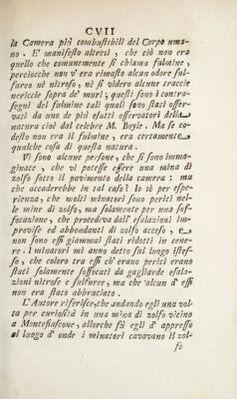 CVII
la Camera più combustibili del Corpo uma-
no. E' manifesto altresì, che ciò non era
quello che comunemente si chiama fulmine,
perciocche non v' era rimasto alcun odore sul-
fureo nè nitroso, nè si videro alcune traccie
nericcie sopra de' muri; questi sono i contra-
segni del fulmine tali quali sono stati osser-
vati da uno de più esatti osservatori della
natura cioè dal celebre M. Boyle. Ma se co-
desto non era il fulmine, era certamente
qualche cosa di questa natura.
Vi sono alcune persone, che si sono imma-
ginate, che vi potesse essere una mina di
zolfo sotto il pavimento della camera: ma
che accaderebbe in tal caso? Io sò per espe-
rienza, che molti minatori sono periti nel-
le mine di zolfo, ma solamente per una suf-
focazione, che procedeva dall' esalazioni im-
provise ed abbondanti di zolfo acceso, e
non sono essi giammai stati ridotti in cene-
re. I minatori mi anno detto sul luogo istes-
so, che coloro tra essi ch' erano periti erano
stati solamente soffocati da gagliarde esala-
zioni nitrose e sulfuree, ma che alcun d' essi
non era stato abbruciato.
L' Autore riferisce, che andando egli una vol-
ta per curiosità in una mina di zolfo vicino
a Montefiascone, allorche fù egli d' appresso
al luogo d' onde i minatori cavavano il zol-
fo